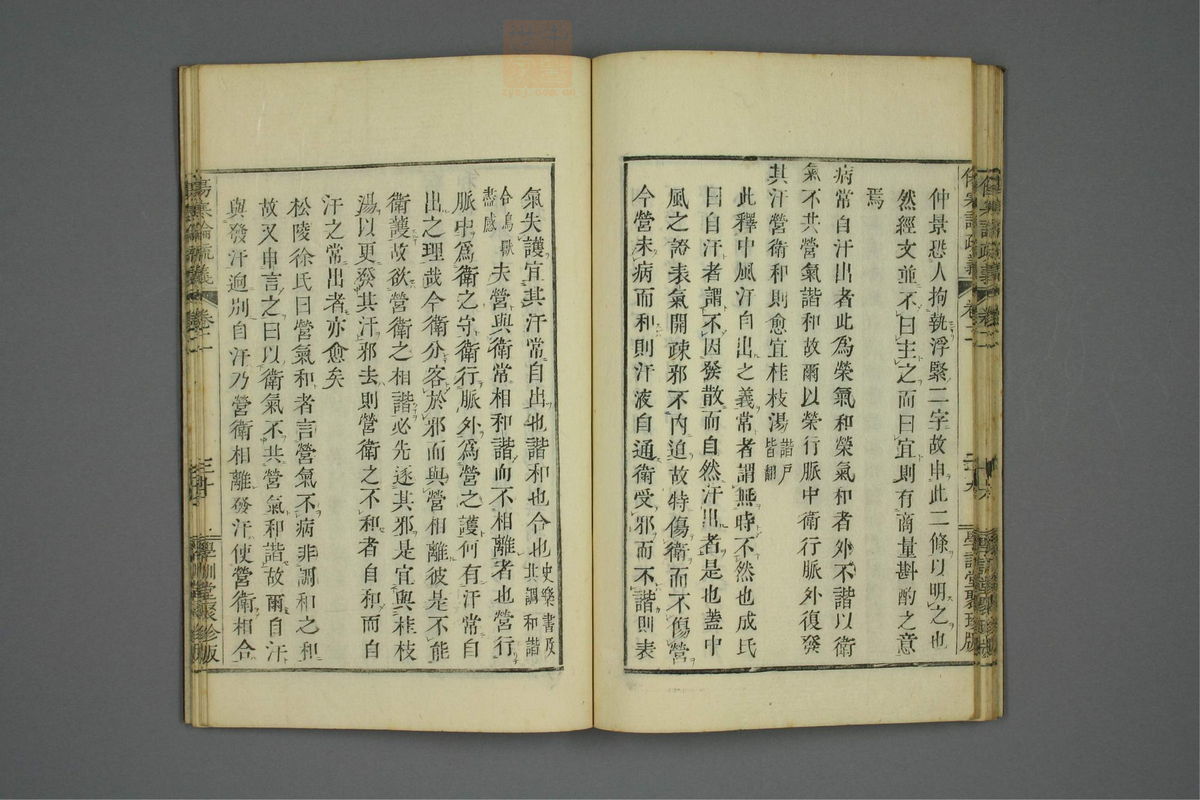 仲景恐人拘執浮緊二字故申此二條以明之也
然經文並不曰主之而曰宜則有商量斟酌之意
焉
病常自汗出者此爲榮氣和榮氣和者外不諧以衛
氣不共營氣諧和故爾以榮行脈中衛行脈外復發
其汗營衛和則愈宜桂枝湯諧戸皆翻
此釋中風汗自出之義常者謂無時不然也成氏
曰自汗者謂不因發散而自然汗出者是也蓋中
風之證表氣開疎邪不內迫故特傷衛而不傷營
今營未病而和則汗液自通衛受邪而不諧則表
氣失護宜其汗常自出也諧和也合也史樂書及其調和諧
合鳥獸盡感夫營與衛常相和諧而不相離者也營行
脈中爲衛之守衛行脈外爲營之護何有汗常自
出之理哉今衛分客於邪而與營相離彼是不能
衛護故欲營衛之相諧必先逐其邪是宜與桂枝
湯以更發其汗邪去則營衛之不和者自和而自
汗之常出者亦愈矣
松陵徐氏曰營氣和者言營氣不病非調和之和
故又申言之曰以衛氣不共營氣和諧故爾自汗
與發汗迥別自汗乃營衛相離發汗使營衛相合
傷寒論疏義
卷二
學訓堂聚珍版